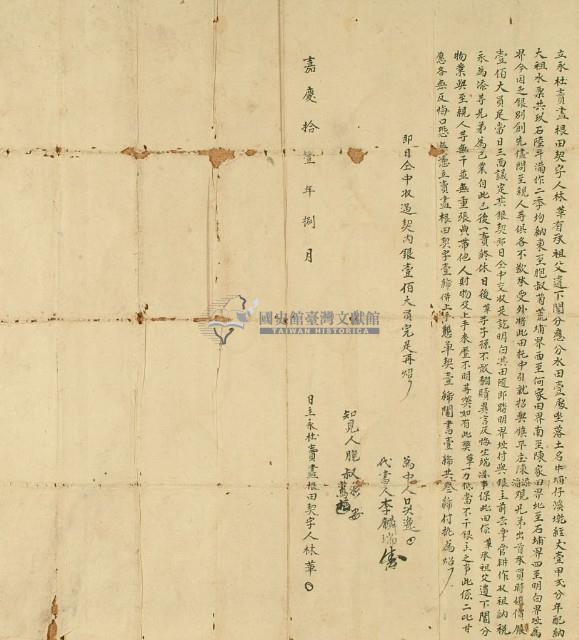 立永杜賣盡根田契字人林華有承祖父遺下鬮分應分水田壹處坐落土名牛埔仔溪墘經丈壹甲貳分年配納
大租水粟共玖石陸斗滿作二季均納東至胞叔菊荒埔界西至何家田界南至陳家田界北至石埔界四至明白界址為
界今因乏銀別創先儘問至親人等俱各不欲承受外將此田托中引就招與鎮平庄陳 觀兄弟出首承買時值價銀
壹佰大員足當日三面議定其銀契即日仝中交收足訖明白其田隨即踏明界址付與銀主前去掌管耕作收租納稅
永為添等兄弟為己業自此已後一賣終休日後華子子孫不敢翻贖異言反悔生端滋事保此田係華承祖父遺下鬮分
物業與至親人等無干並無重張典帶他人財物及上手來歷不明等獘如有此獘華一力抵當不干銀主之事此係二比甘
愿各無反悔口恐無憑立賣盡根田契字壹紙併上手 單契壹紙鬮書壹紙共叁紙付執為炤
即日仝中收過契內銀壹佰大員完足再炤
為中人呂洪逸
代書人李麟瑞
知見人胞叔
嘉慶拾壹年捌月 日立永杜賣盡根田契字人林華
國史館臺灣文獻館
TAIWAN HISTORICA